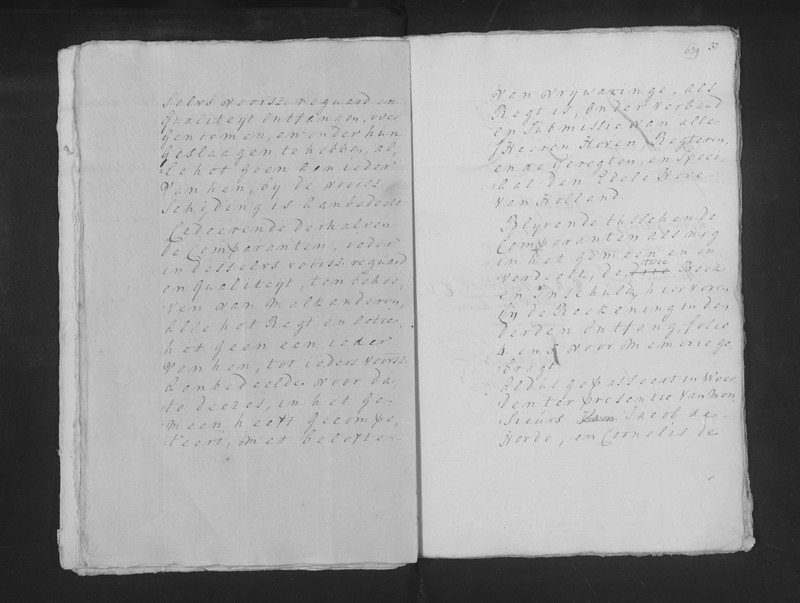 selvs voorsz. reguard en
qualiteyt ontfangen, over
genoomen, en onder hun
geslaagen te hebben, al
le het geen aan ieder
van hen, by de voorsz.
Schijding is aanbedeelt
Cedeerende derhalven
de Comparanten, ieder
in desselvs voorsz. reguard
en qualiteyt, ten behoe-
ven van malkanderen,
alle het Regt en actie,
het geen een ieder
van hen, tot ieders voorsz.
aanbedeelde voor da-
to deezes, in het ge-
meen heeft gecompe-
teert, met belofte
639 37
van vrywaringe, als
Regt is, onder verband
en Submissie van alle
Heeren Hoven, Regteren,
en de Geregten, en speci-
aal den Edele Hove
van Holland.
Blyvende tusschen de
Comparanten als nog
in het gemeen en on
verdeelt, de twee Boek
en Inschulden hier vore,
by de Reekening in den
derden ontfang, folio
4. en 5 voor memorie ge
bragt
Aldus gepasseert in Woer
den ter presentie van Mon
sieurs Jacob de
Horde, en Cornelis de